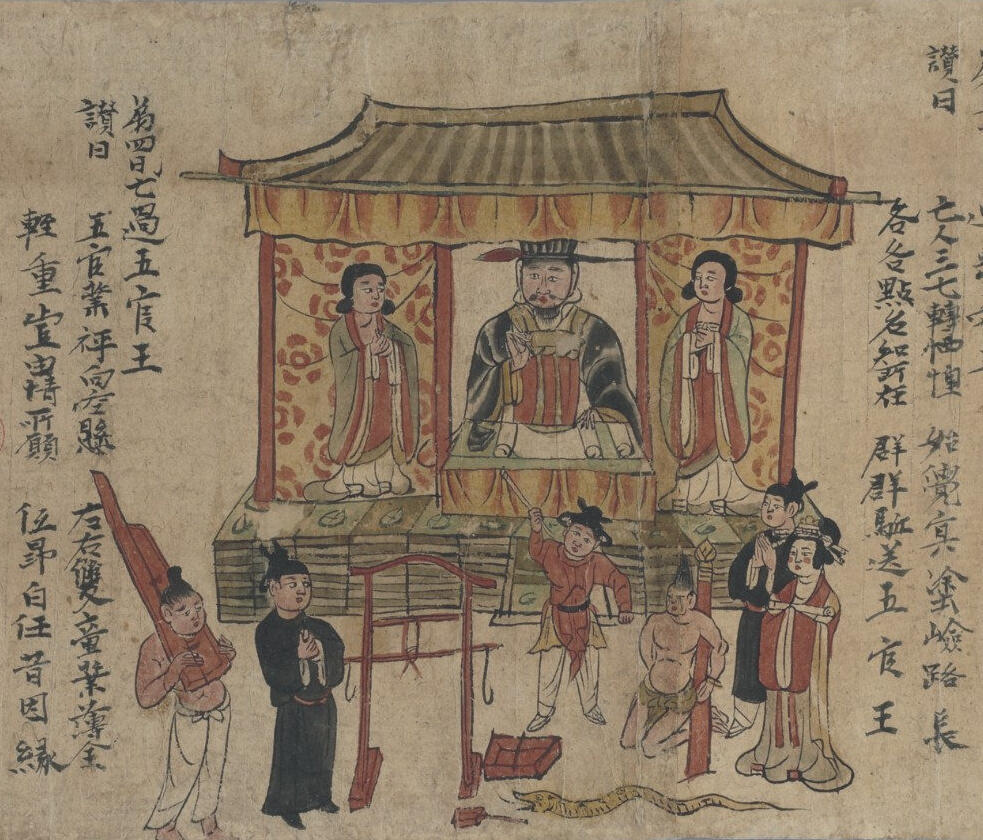 讃曰
亡人三七轉恓惶 始覺冥塗嶮路長
各各點名知所在 群群駈送五官王
苐四日七過五官王
讃曰
五官業秤向空懸 左右雙童業薄全
輕重豈由情所願 伍昂自任昔因緣